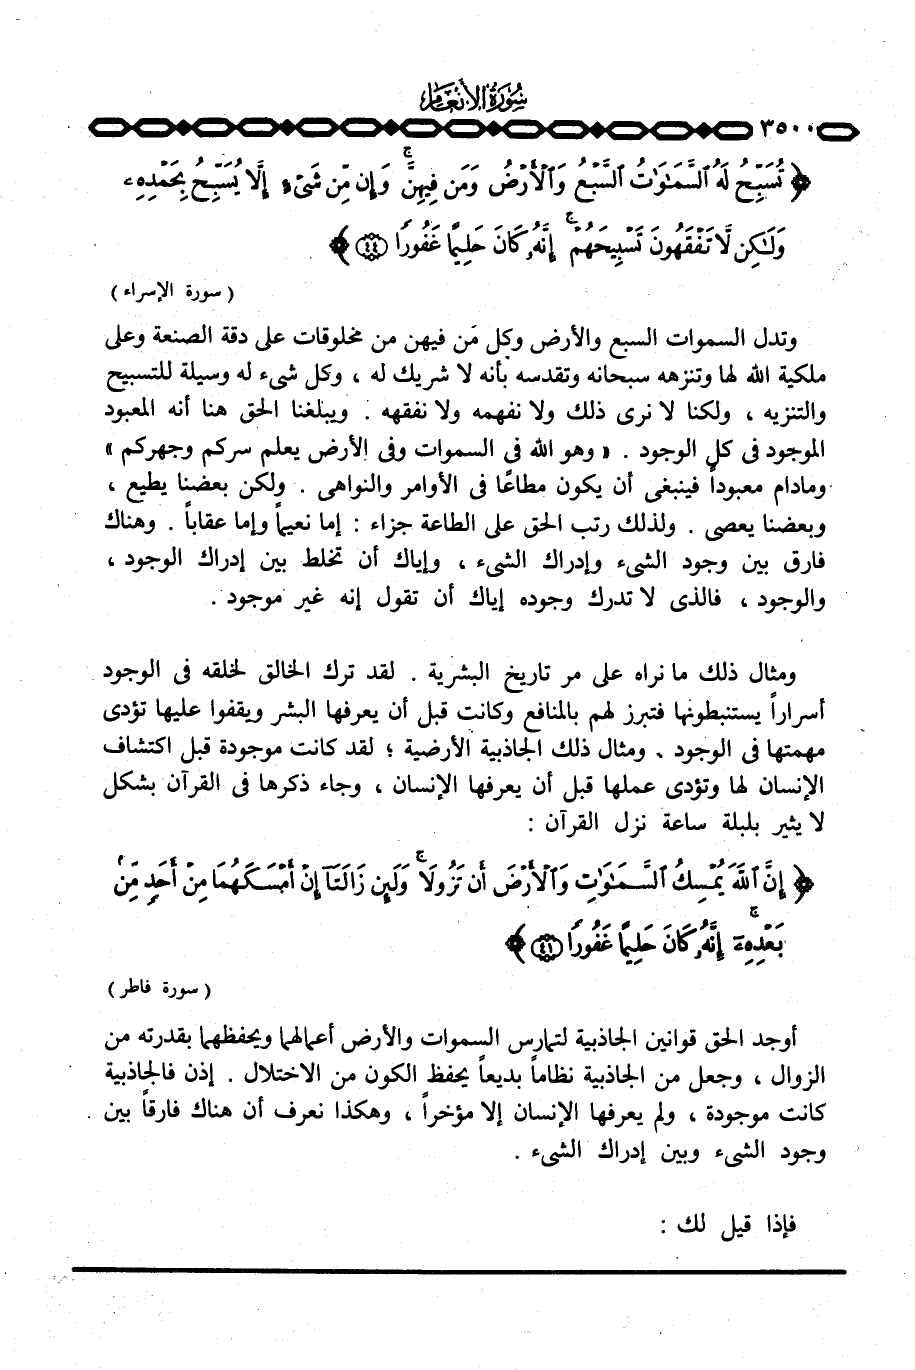 سورة الأنعام
٣٥٠٠
﴿ تُسَبِّحُ لَهُ السَّمَٰوَٰتُ السَّبْعُ وَالْأَرْضُ وَمَن فِيهِنَّ ۚ وَإِن مِّن شَيْءٍ إِلَّا يُسَبِّحُ بِحَمْدِهِۦ
وَلَٰكِن لَّا تَفْقَهُونَ تَسْبِيحَهُمْ ۚ إِنَّهُۥ كَانَ حَلِيمًا غَفُورًا ﴿٤٤﴾ ﴾
( سورة الإسراء )
وتدل السموات السبع والأرض وكل مَن فيهن من مخلوقات على دقة الصنعة وعلى
ملكية الله لها وتنزهه سبحانه وتقدسه بأنه لا شريك له ، وكل شىء له وسيلة للتسبيح
والتنزيه ، ولكنا لا نرى ذلك ولا نفهمه ولا نفقهه . ويبلغنا الحق هنا أنه المعبود
الموجود فى كل الوجود . « وهو الله فى السموات وفى الأرض يعلم سركم وجهركم »
ومادام معبوداً فينبغى أن يكون مطاعًا فى الأوامر والنواهى . ولكن بعضنا يطيع ،
وبعضنا يعصى . ولذلك رتب الحق على الطاعة جزاء : إما نعيماً وإما عقاباً . وهناك
فارق بين وجود الشىء وإدراك الشىء ، وإياك أن تخلط بين إدراك الوجود ،
والوجود ، فالذى لا تدرك وجوده إياك أن تقول إنه غير موجود .
ومثال ذلك ما نراه على مر تاريخ البشرية . لقد ترك الخالق لخلقه فى الوجود
أسراراً يستنبطونها فتبرز لهم بالمنافع وكانت قبل أن يعرفها البشر ويقفوا عليها تؤدى
مهمتها فى الوجود . ومثال ذلك الجاذبية الأرضية ؛ لقد كانت موجودة قبل اكتشاف
الإنسان لها وتؤدى عملها قبل أن يعرفها الإنسان ، وجاء ذكرها فى القرآن بشكل
لا يثير بلبلة ساعة نزل القرآن :
﴿ إِنَّ اللَّهَ يُمْسِكُ السَّمَٰوَٰتِ وَالْأَرْضَ أَن تَزُولَا ۚ وَلَئِن زَالَتَآ إِنْ أَمْسَكَهُمَا مِنْ أَحَدٍ مِّنۢ
بَعْدِهِۦٓ ۚ إِنَّهُۥ كَانَ حَلِيمًا غَفُورًا ﴿٤١﴾ ﴾
( سورة فاطر )
أوجد الحق قوانين الجاذبية لتمارس السموات والأرض أعمالهما ويحفظهما بقدرته من
الزوال ، وجعل من الجاذبية نظاماً بديعاً يحفظ الكون من الاختلال . إذن فالجاذبية
كانت موجودة ، ولم يعرفها الإنسان إلا مؤخراً ، وهكذا نعرف أن هناك فارقاً بين
وجود الشىء وبين إدراك الشىء .
فإذا قيل لك :